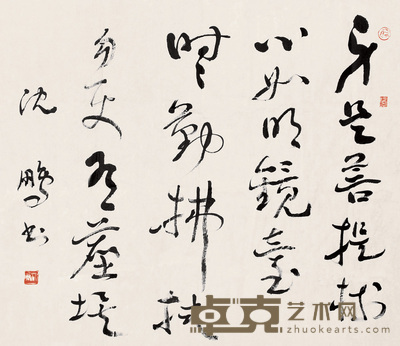 身是菩提樹
心如明鏡臺
時々勤拂拭
勿使有塵埃
沈鵬書
卓克艺术网
zhuokearts.com